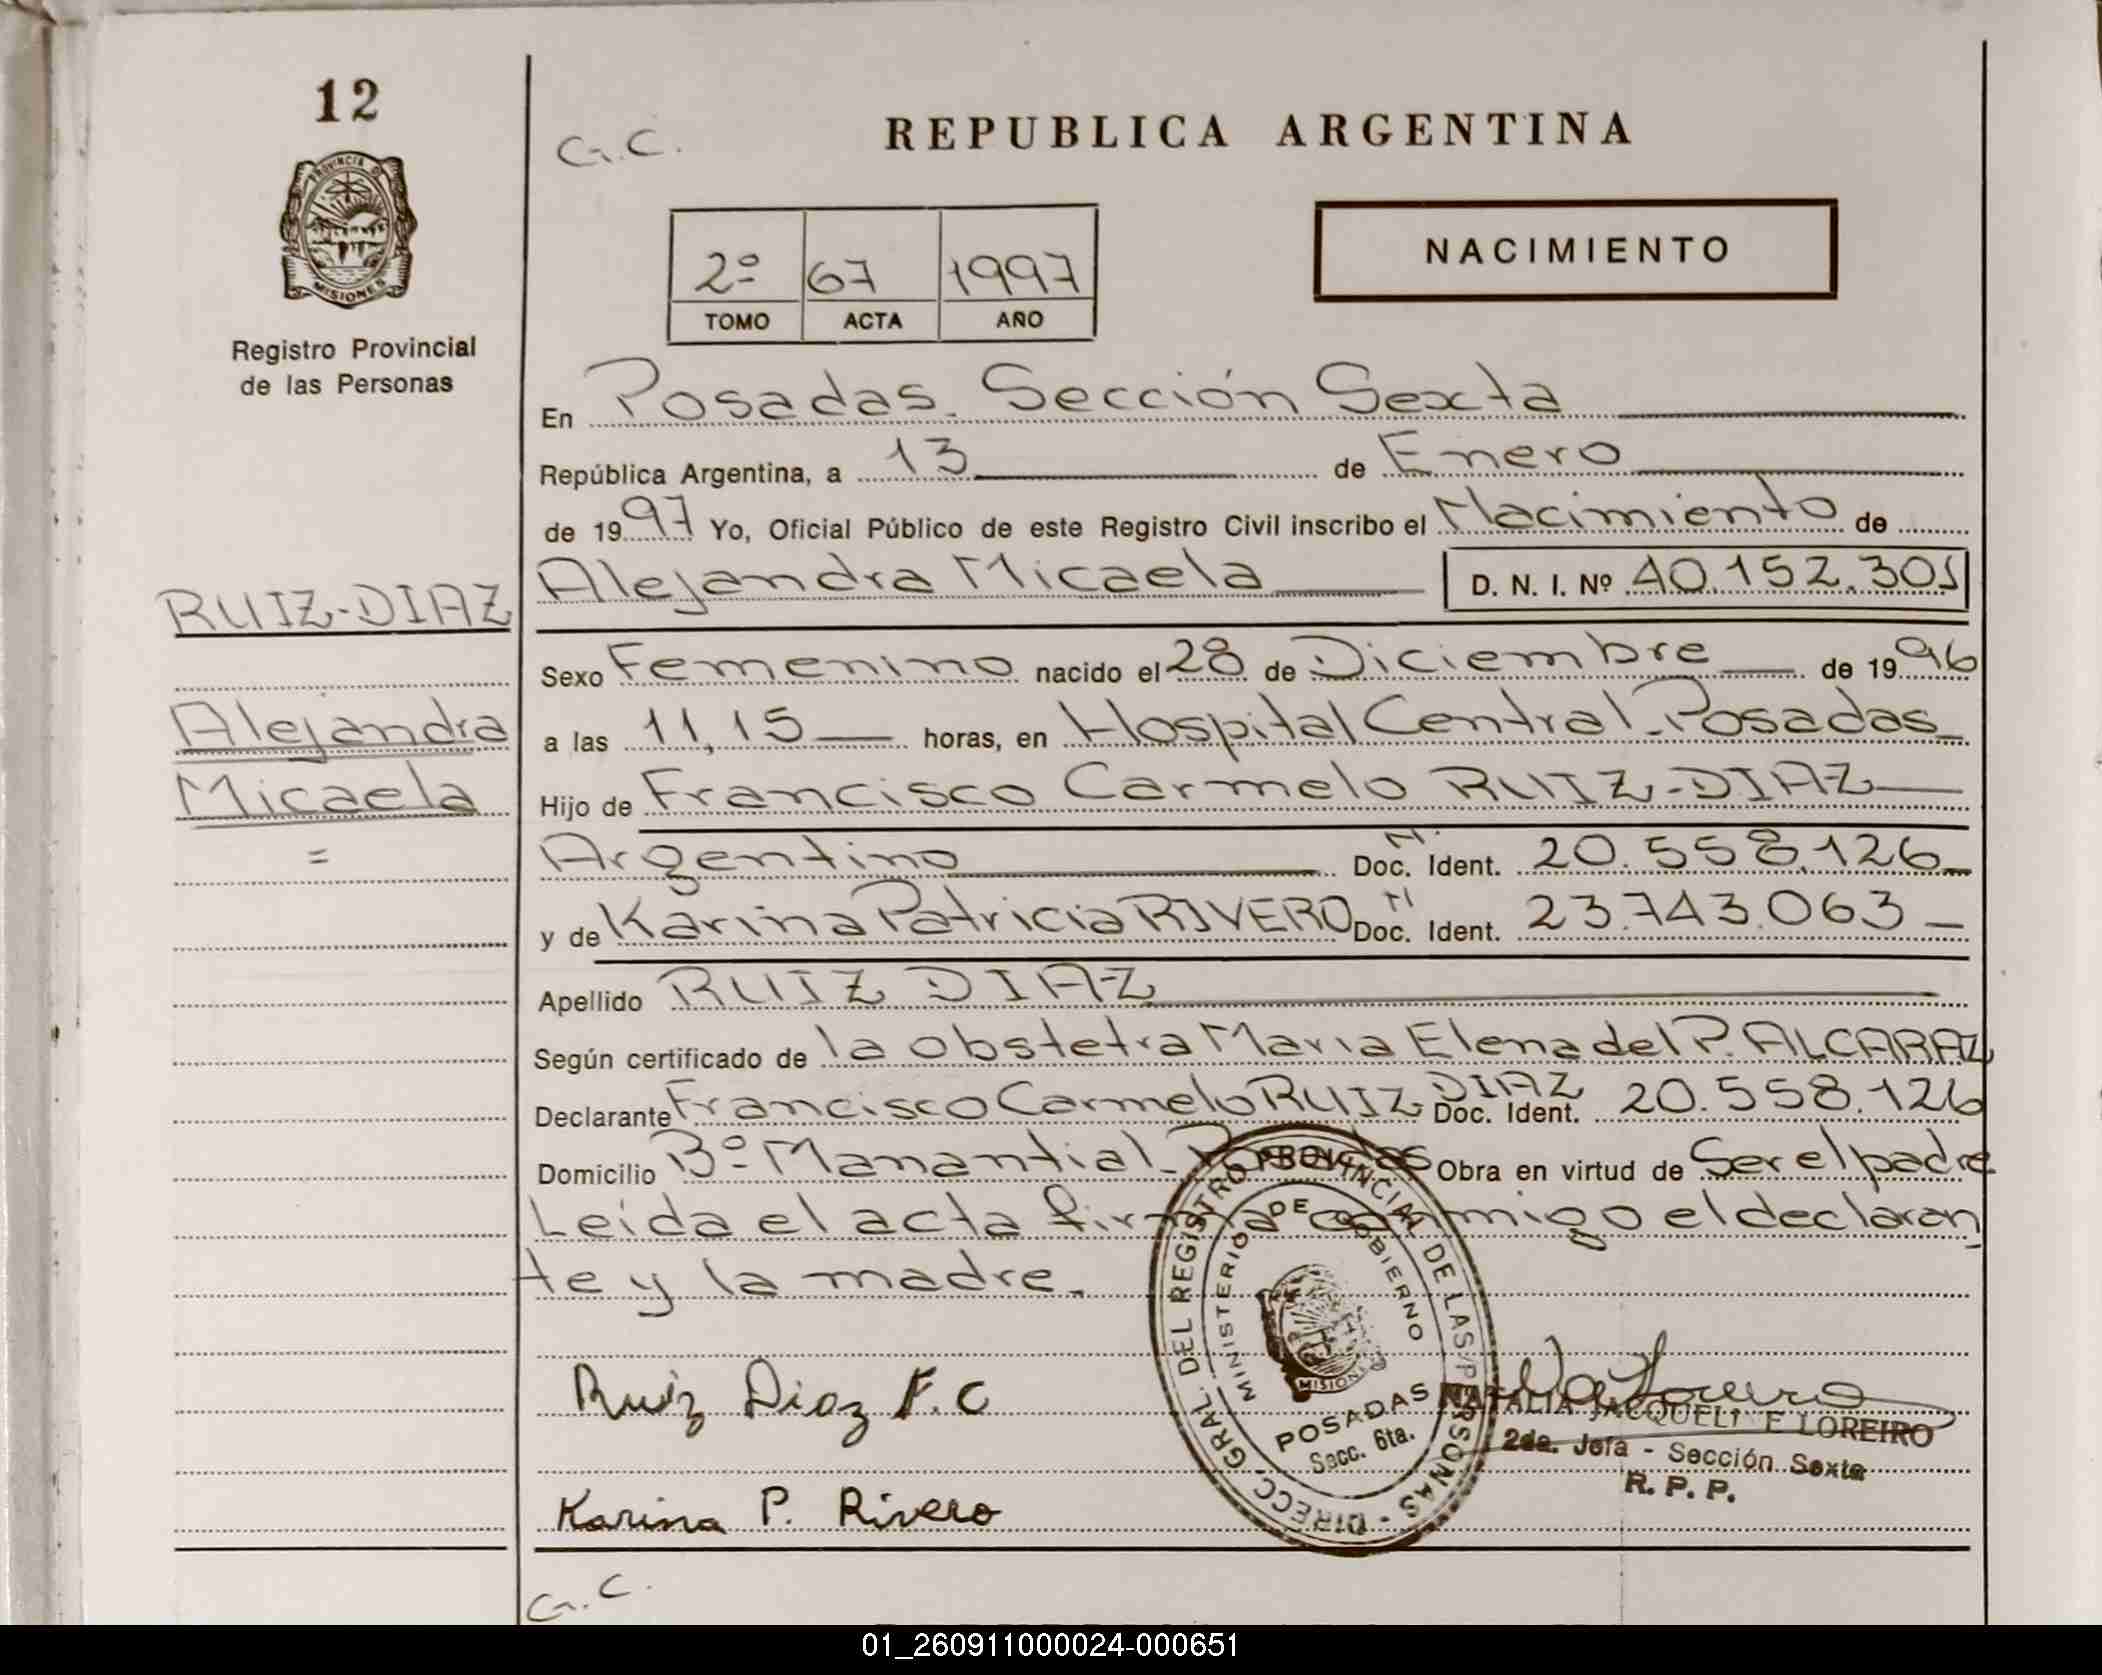 12
PROVINCIA DE
MISIONES
Registro Provincial
de las Personas
RUIZ-DIAZ
Alejandra
Micaela
=
G.C.
REPUBLICA ARGENTINA
2º 67 1997
TOMO ACTA AÑO
NACIMIENTO
En Posadas. Sección Sexta
República Argentina, a 13 de Enero
de 1997 Yo, Oficial Público de este Registro Civil inscribo el Nacimiento de
Alejandra Micaela D. N. I. Nº 40.152.301
Sexo Femenino nacido el 28 de Diciembre de 1996
a las 11,15 horas, en Hospital Central-Posadas
Hijo de Francisco Carmelo RUIZ-DIAZ
Argentino N. Doc. Ident. 20.558.126
y de Karina Patricia RIVERO N Doc. Ident. 23.743.063
Apellido RUIZ DIAZ
Según certificado de la obstetra Maria Elena del P. ALCARAZ
Declarante Francisco Carmelo RUIZ-DIAZ Doc. Ident. 20.558.126
Domicilio Bº Manantial-Posadas Obra en virtud de Ser el padre
Leída el acta firma conmigo el declaran
te y la madre.
Ruiz Diaz F.C
Karina P. Rivero
DIRECC. GRAL. DEL REGISTRO PROVINCIAL DE LAS PERSONAS -
MINISTERIO DE GOBIERNO
MISIONES
POSADAS
Secc. 6ta.
NATALIA JACQUELINE LOREIRO
2da. Jefa - Sección Sexta
R. P. P.
G.C.
01_260911000024-000651